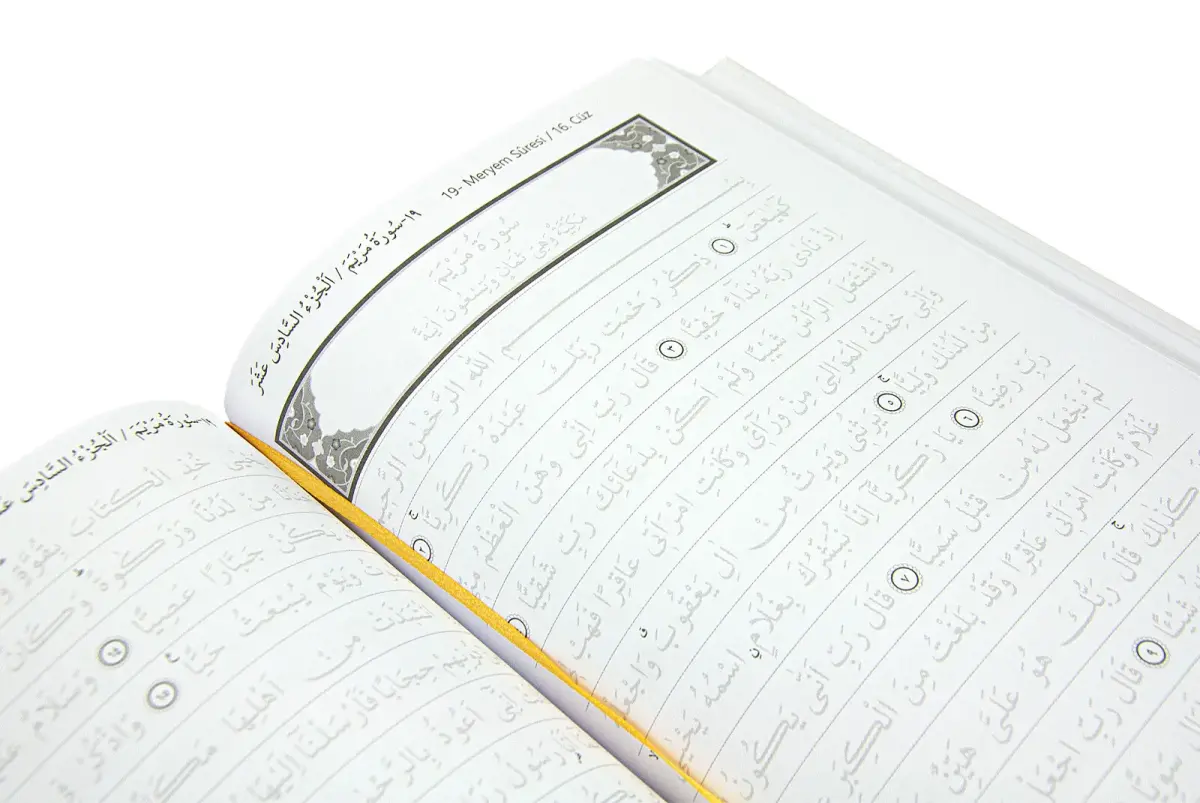 ١٩-سُورَةُ مَرْيَمَ / اَلْجُزْءُ السَّادِسَ عَشَرَ 19- Meryem Sûresi / 16. Cüz
سُورَةُ مَرْيَمَ
مَكِّيَّةٌ وَهِيَ ثَمَانٍ وَتِسْعُونَ اٰيَةً
اللّٰهِ الرَّحْمٰنِ
كٓهٰيٰعٓصٓ ١ ذِكْرُ رَحْمَتِ رَبِّكَ عَبْدَهُ زَكَرِيَّا ٢
اِذْ نَادٰى رَبَّهُ نِدَٓاءً خَفِيًّا ٣ قَالَ رَبِّ اِنّٖى وَهَنَ الْعَظْمُ
وَاشْتَعَلَ الرَّأْسُ شَيْبًا وَلَمْ اَكُنْ بِدُعَٓائِكَ رَبِّ شَقِيًّا
وَاِنّٖى خِفْتُ الْمَوَالِىَ مِنْ وَرَٓائٖى وَكَانَتِ امْرَاَتٖى عَاقِرًا فَهَبْ
مِنْ لَدُنْكَ وَلِيًّا ٥ يَرِثُنٖى وَيَرِثُ مِنْ اٰلِ يَعْقُوبَ
رَبِّ رَضِيًّا ٦ يَا زَكَرِيَّٓا اِنَّا نُبَشِّرُكَ بِغُلَامٍ اسْمُهُ
لَمْ نَجْعَلْ لَهُ مِنْ قَبْلُ سَمِيًّا ٧ قَالَ رَبِّ اَنّٰى يَكُونُ
غُلَامٌ وَكَانَتِ امْرَاَتٖى عَاقِرًا وَقَدْ بَلَغْتُ مِنَ الْكِبَرِ
كَذٰلِكَ قَالَ رَبُّكَ هُوَ عَلَىَّ هَيِّنٌ
شَيْئًا ٩ قَالَ رَبِّ اجْعَلْ
سَوِيًّا
١٩-سُورَةُ مَرْيَمَ / اَلْجُزْءُ السَّادِسَ
خُذِ الْكِتَابَ بِقُوَّةٍ
مِنْ لَدُنَّا وَزَكٰوةً وَكَانَ
يَكُنْ جَبَّارًا عَصِيًّا ١٤ وَسَلَامٌ
وَيَوْمَ يُبْعَثُ حَيًّا ١٥ وَاذْكُرْ
مِنْ اَهْلِهَا
حِجَابًا فَاَرْسَلْنَٓا اِلَيْهَا
اِنّٖٓى اَعُوذُ
رَسُولُ